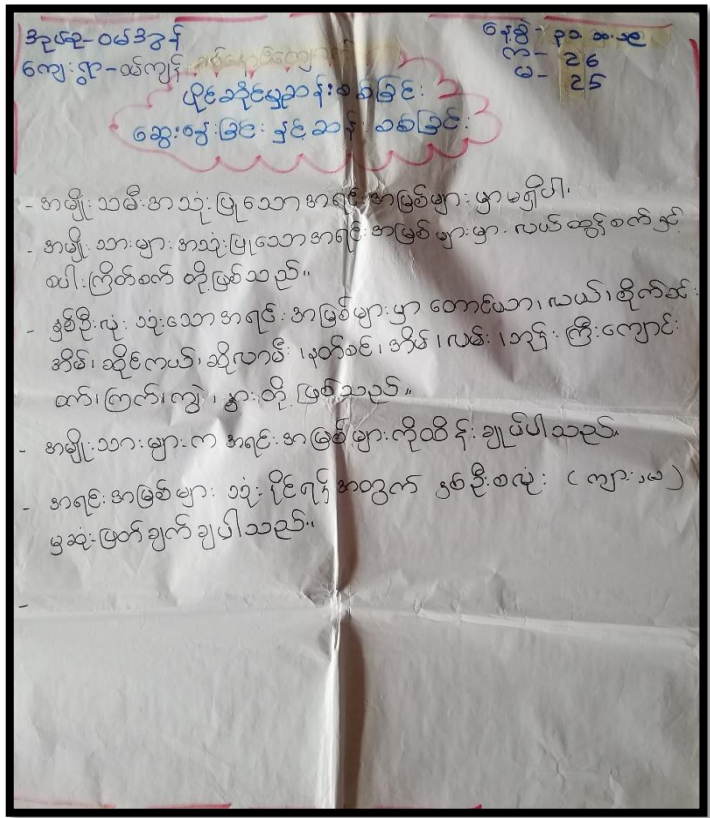 အုပ်စု-ဝမ်အွန် နေ့စွဲ-
ကျေးရွာ-ထမ်ကျန် ကျ- 26
မ- 25
ပိုင်ဆိုင်မှုဆန်းစစ်ခြင်း
ဆွေးနွေးခြင်း နှင့်ဆန်းစစ်ခြင်း
- အမျိုးသမီးအသုံးပြုသောအရင်းအမြစ်များမှာမရှိပါ၊
- အမျိုးသားများအသုံးပြုသောအရင်းအမြစ်များမှာ လယ်ထွန်စက်နှင့်
စပါးကြိတ်စက် တို့ဖြစ်သည်။
- နှစ်ဦးလုံး သုံးသောအရင်းအမြစ်များမှာ တောင်ယာ၊လယ်၊စိုက်ခင်း
အိမ်၊ ဆိုင်ကယ်၊ဆိုလာမီး၊နတ်စင်၊အိမ်၊လမ်း၊ဘုန်းကြီးကျောင်း
ဝက်၊ကြက်၊ကျွဲ၊နွားတို့ ဖြစ်သည်။
- အမျိုးသားများက အရင်းအမြစ်များကိုထိန်းချုပ်ပါသည်။
- အရင်းအမြစ်များ သုံးနိုင်ရန်အတွက် နှစ်ဦးစလုံး (ကျား၊မ)
မှဆုံးဖြတ်ချက်ချပါသည်။
-